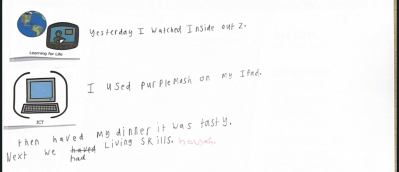 Yesterday I watched Inside out 2.
Learning for Life
I used purpleMash on my IPad.
ICT
then haved my dinner it was tasty.
Next we haved Living Skills.
had